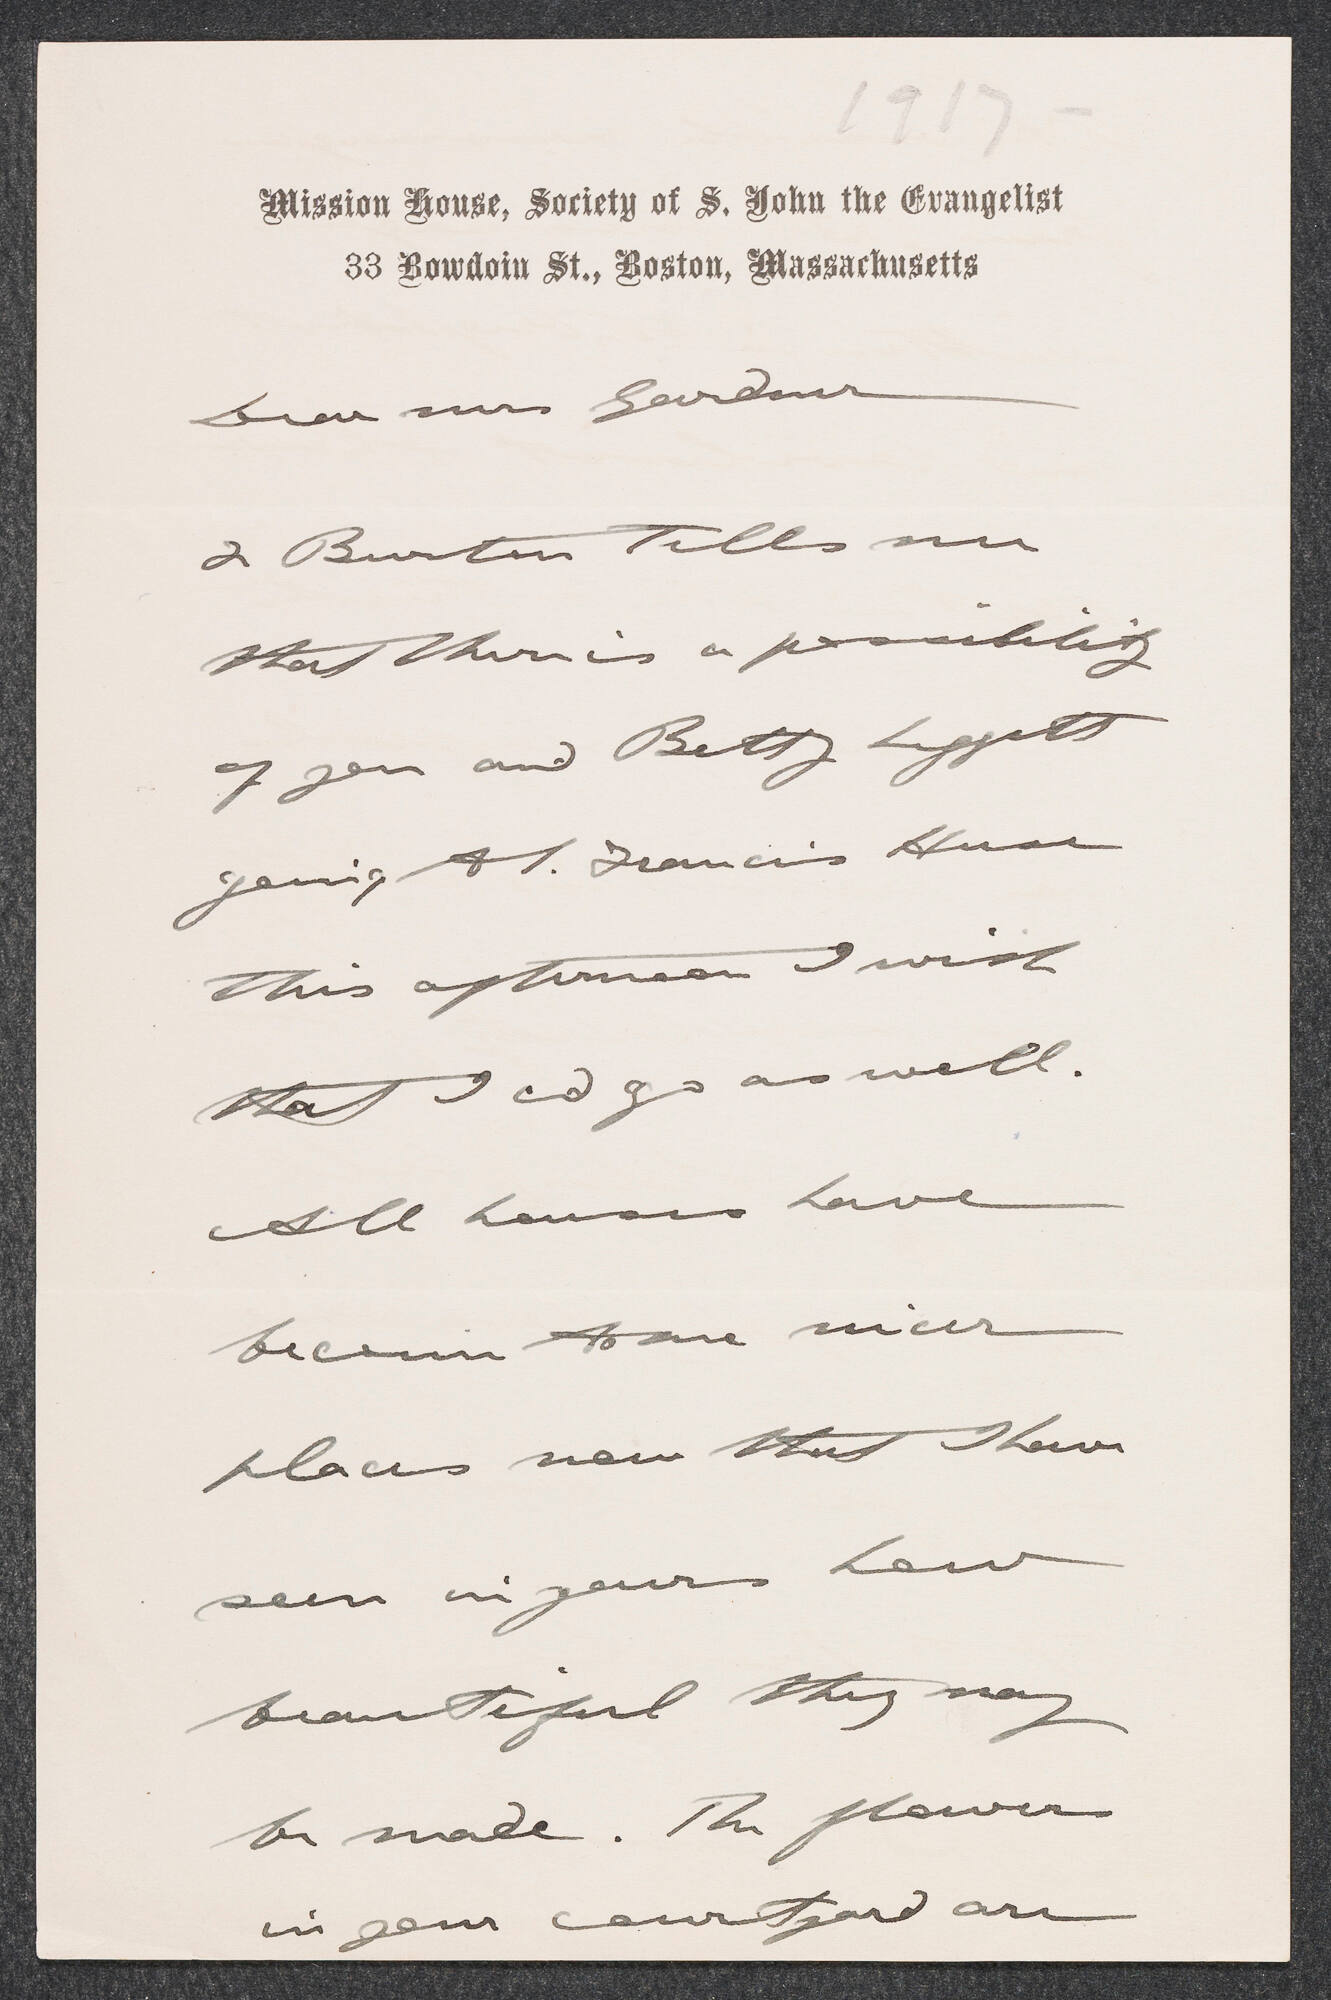 1917 -
Mission House, Society of S. John the Evangelist
33 Bowdoin St., Boston, Massachusetts
Dear Mrs Gardner
Burton tells me
that there is a possibility
of you and Betty Liggett
going to S. Francis House
this afternoon I wish
that I cd go as well.
All houses have
become to me nicer
places now that I have
seen in yours how
beautiful they may
be made. The flowers
in your courtyard are